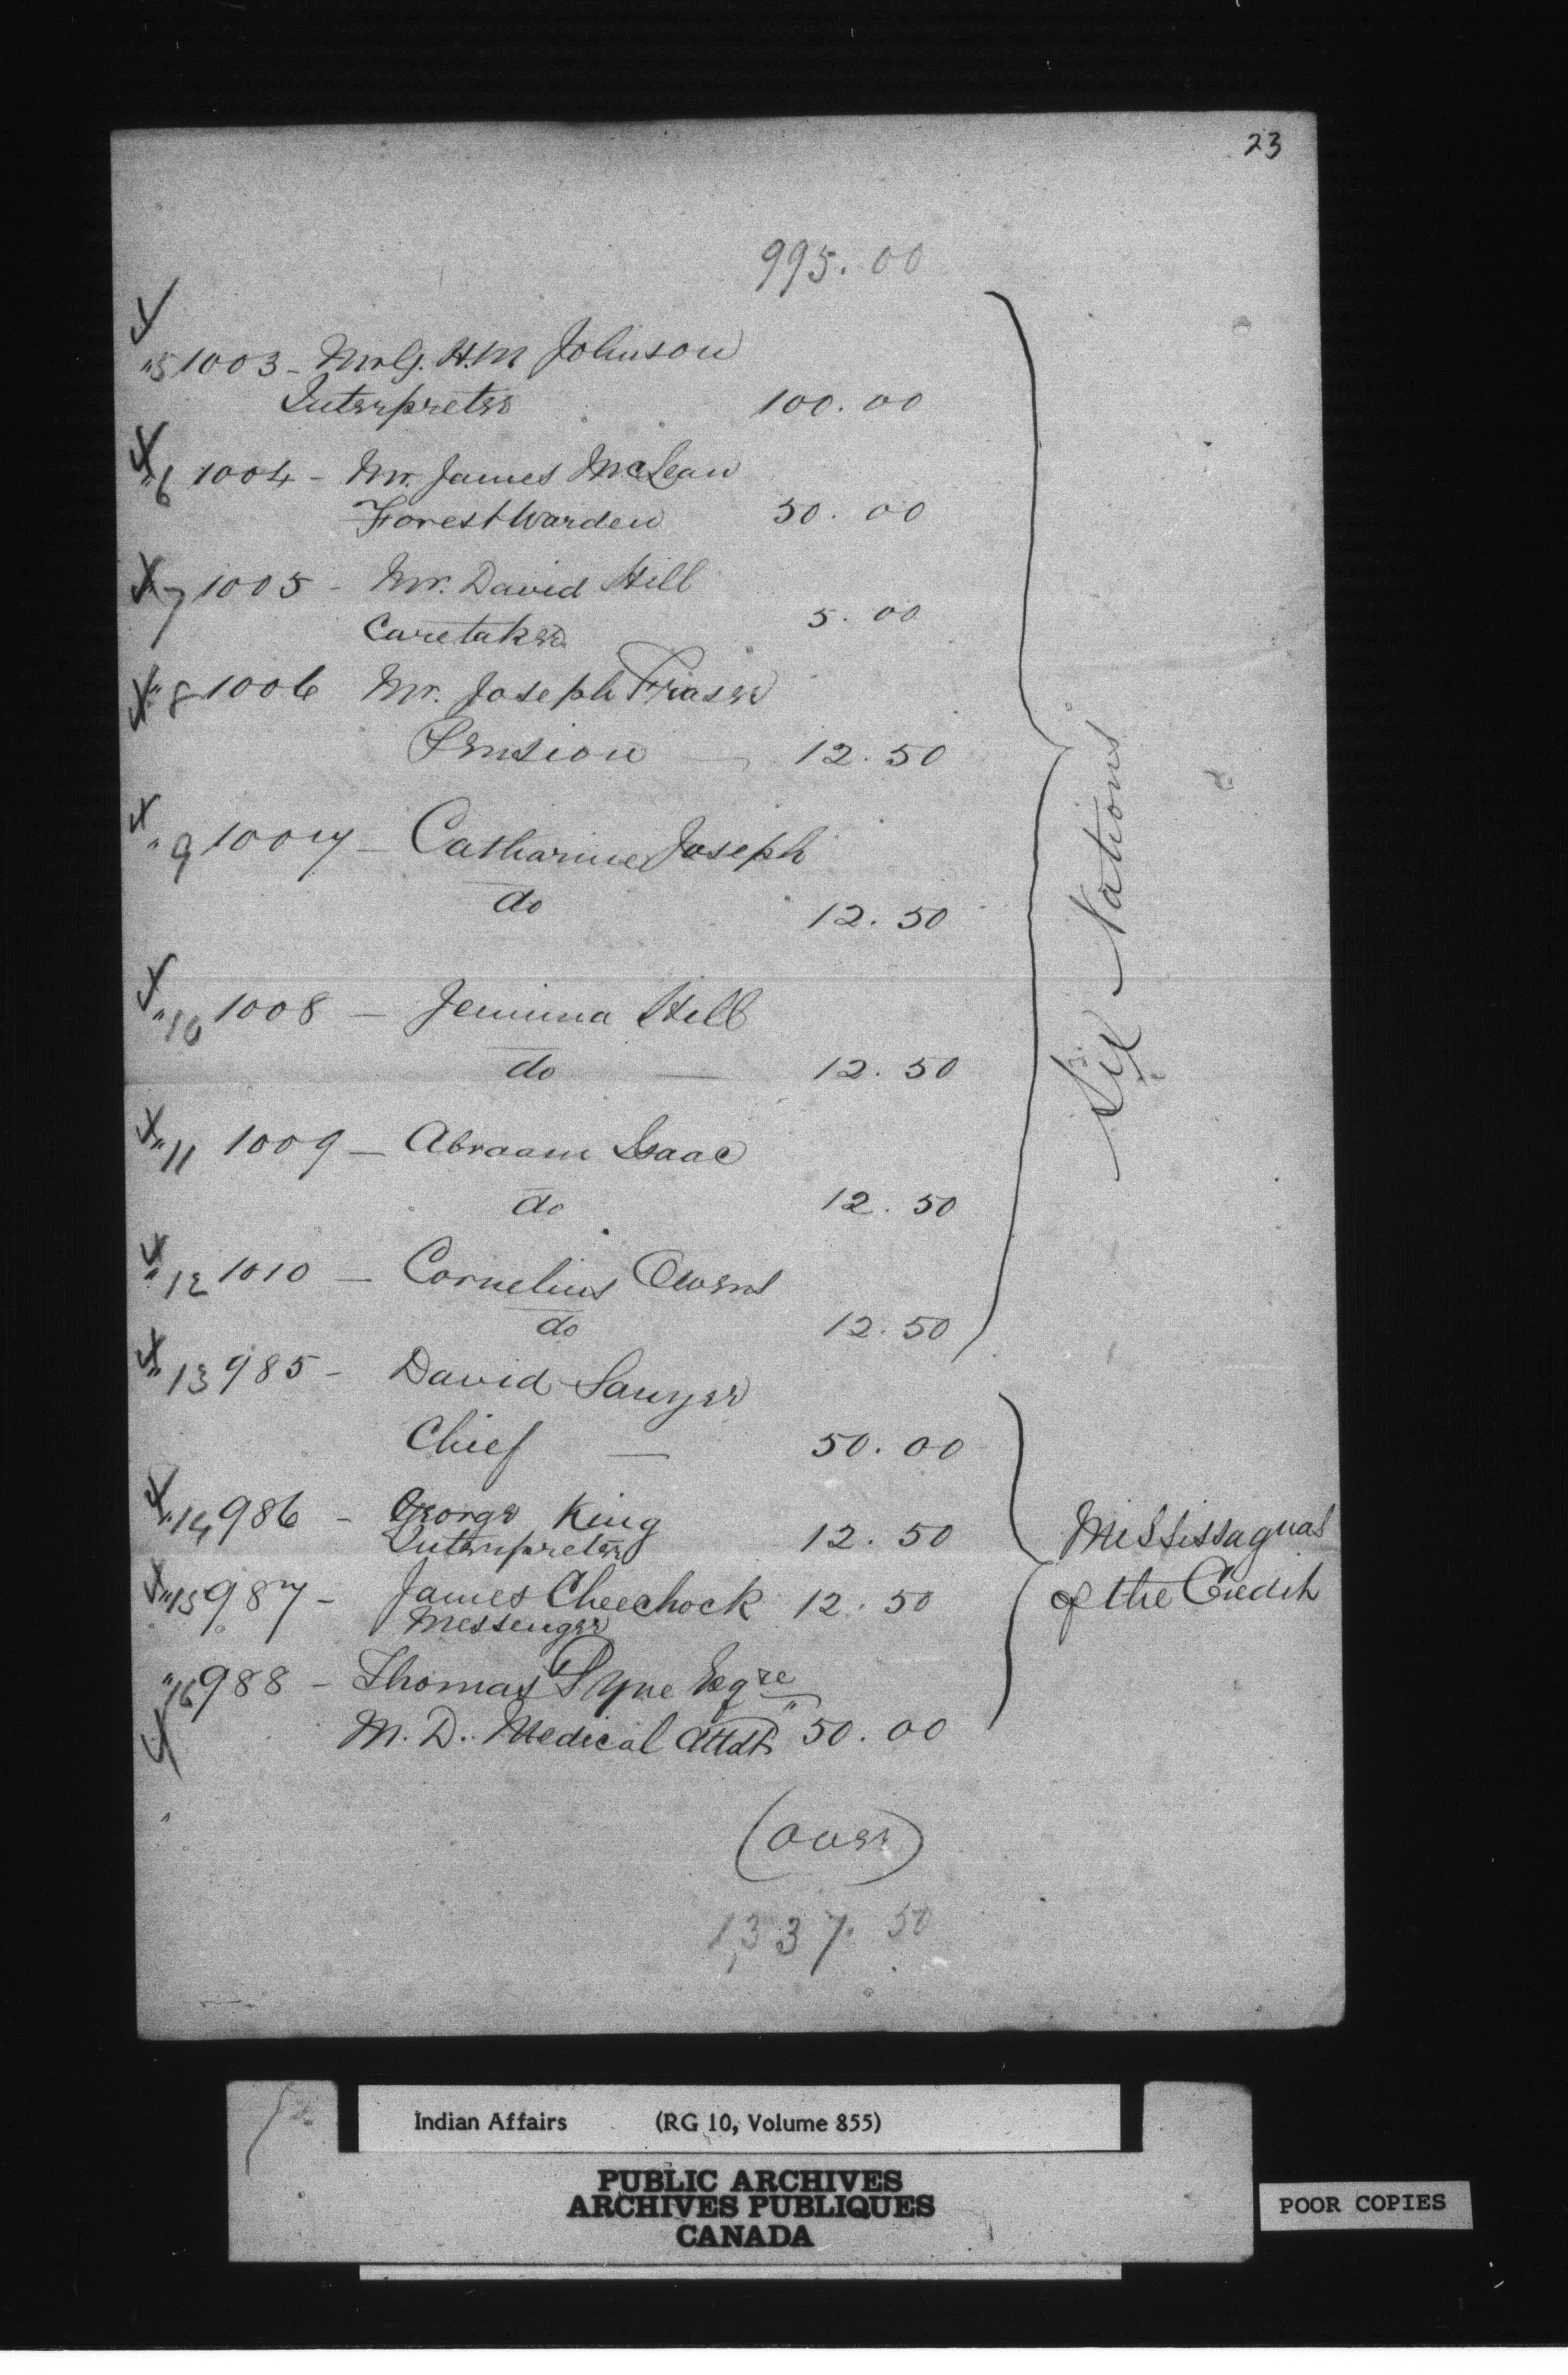 23
995.00
"5 1003 - Mr G. H. M Johnson
Interpreter 100.00
"6 1004 - Mr. James McLean
Forest Warden 50.00
"7 1005 - Mr. David Hill
Caretaker 5.00
"8 1006 Mr. Joseph Fraser
Pension — 12.50
"9 1007 - Catharine Joseph
do 12.50
"10 1008 — Jemima Hill
do — 12.50
"11 1009 — Abraam Isaac
do 12.50
"12 1010 — Cornelius Owens
do 12.50
Six Nations
"13 985 - David Sawyer
Chief — 50.00
"14 986 - George King
Interpreter 12.50
"15 987 - James Cheechock 12.50
Messenger
"16 988 - Thomas Pyne Esqre
M. D. Medical Attdt 50.00
Mississaguas
of the Credit
(over)
1,337.50
Indian Affairs (RG 10, Volume 855)
PUBLIC ARCHIVES
ARCHIVES PUBLIQUES
CANADA
POOR COPIES